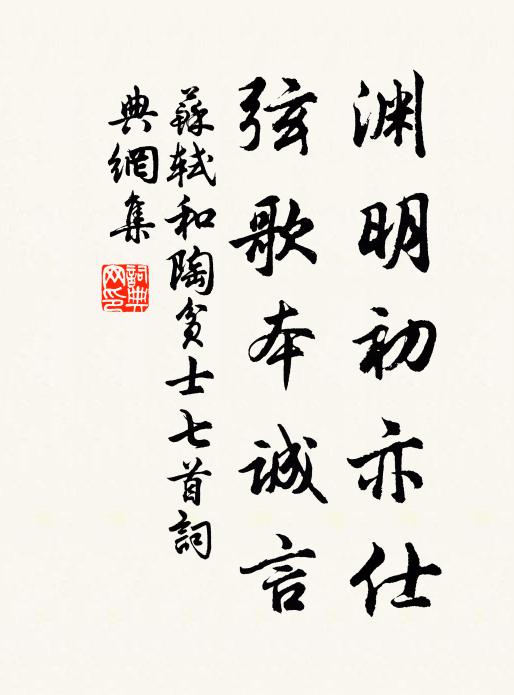 渊明初亦仕
弦歌本诚言
蘇軾和陶貧士七首詞
典網集
詞典
网印